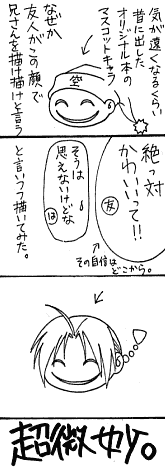 気が遠くなるくらい
昔に出した
オリジナル本の
マスコットキャラ
なぜか
友人がこの顔で
兄さんを描け描けと言う
絶っ対
かわいいって!!
友
その自信は
どこから。
そうは
思えないけどな
は
と言いつつ描いてみた。
超微妙。